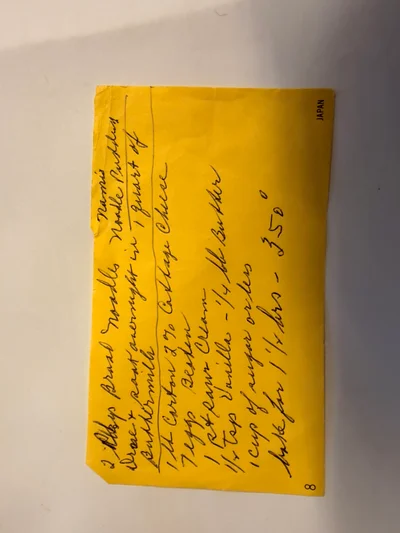 Nami's
2 Pkgs Broad Noodles Noodle Pudding
Drac + soak overnight in 1 quart of
Buttermilk
1 lb Carton 2% Cottage Cheese
7 eggs Beaten
1 Pt sour Cream
1/2 Tsp Vanilla - 1/4 lb Butter
1 cup of sugar
bake for 1 1/2 hrs - 350°
JAPAN
8